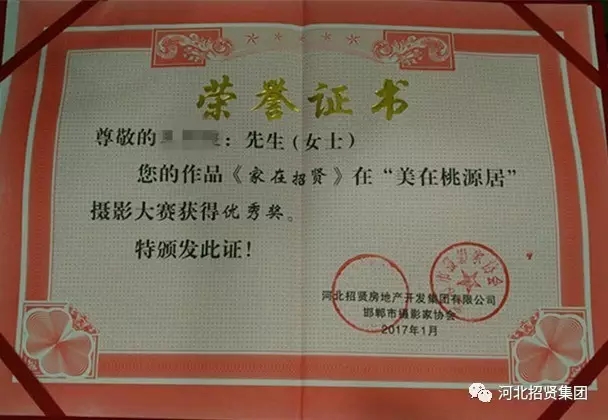 荣誉证书
尊敬的 : 先生(女士)
您的作品《家在招贤》在“美在桃源居”
摄影大赛获得优秀奖。
特颁发此证!
河北招贤房地产开发集团有限公司
邯郸市摄影家协会
2017年1月
河北招贤集团